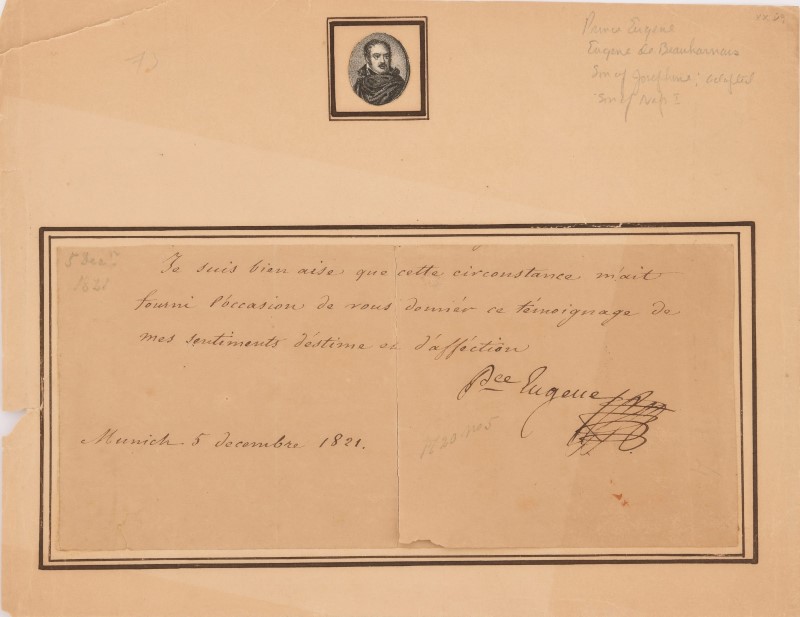 Prince Eugene
Eugene de Beauharnais
Son of Josephine; adopted
Son of Nap I
5 Dec.
1821
Je suis bien aise que cette circonstance m'ait
fourni l'occasion de vous donnér ce témoignage de
mes sentiments d'éstime et d'afféction
Pce Eugene
Munich 5 decembre 1821.